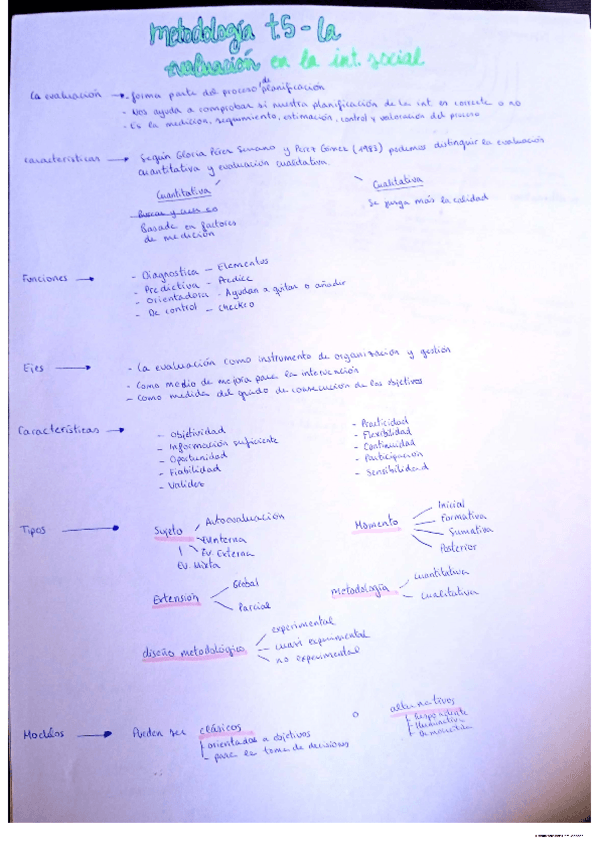 metodología t5 - la
evaluación en la int. social
La evaluación → - forma parte del proceso de planificación
- Nos ayuda a comprobar si nuestra planificación de la int. es correcta o no
- Es la medición, seguimiento, estimación, control y valoración del proceso
características → - Según Gloria Pérez Serrano y Perez Gómez (1983) podemos distinguir la evaluación
cuantitativa y evaluación cualitativa.
Cuantitativa
Basada en factores
de medición
Cualitativa
Se juzga más la calidad
Funciones → - Diagnostica - Elementos
- Predictiva - Predice
- Orientadora - Ayudan a quitar o añadir
- De control - checkeo
Ejes → - La evaluación como instrumento de organización y gestión
- Como medio de mejora para la intervención
- Como medida del grado de consecución de los objetivos
Características →
- Objetividad
- Información suficiente
- Oportunidad
- Fiabilidad
- Validez
- Practicidad
- Flexibilidad
- Continuidad
- Participación
- Sensibilidad
Tipos →
Sujeto
Autoevaluación
Ev. Externa
Ev. Mixta
Momento
Inicial
Formativa
Sumativa
Posterior
Extensión
Global
Parcial
metodología
cuantitativa
cualitativa
diseño metodológico
experimental
cuasi experimental
no experimental
Modelos → Pueden ser clásicos
- orientados a objetivos
- para la toma de decisiones
o
alternativos
- Respondente
- Iluminativa